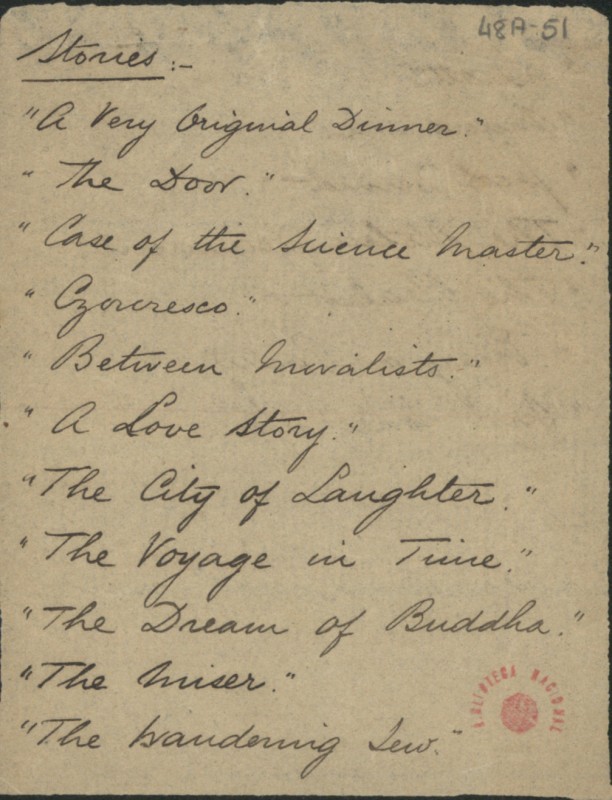 48A-51
Stories:-
"A Very Original Dinner."
"The Door."
"Case of the Science Master."
"Czovresco."
"Between Moralists."
"A Love Story."
"The City of Laughter."
"The Voyage in Time."
"The Dream of Buddha."
"The Miser."
"The Wandering Jew."
BIBLIOTECA NACIONAL